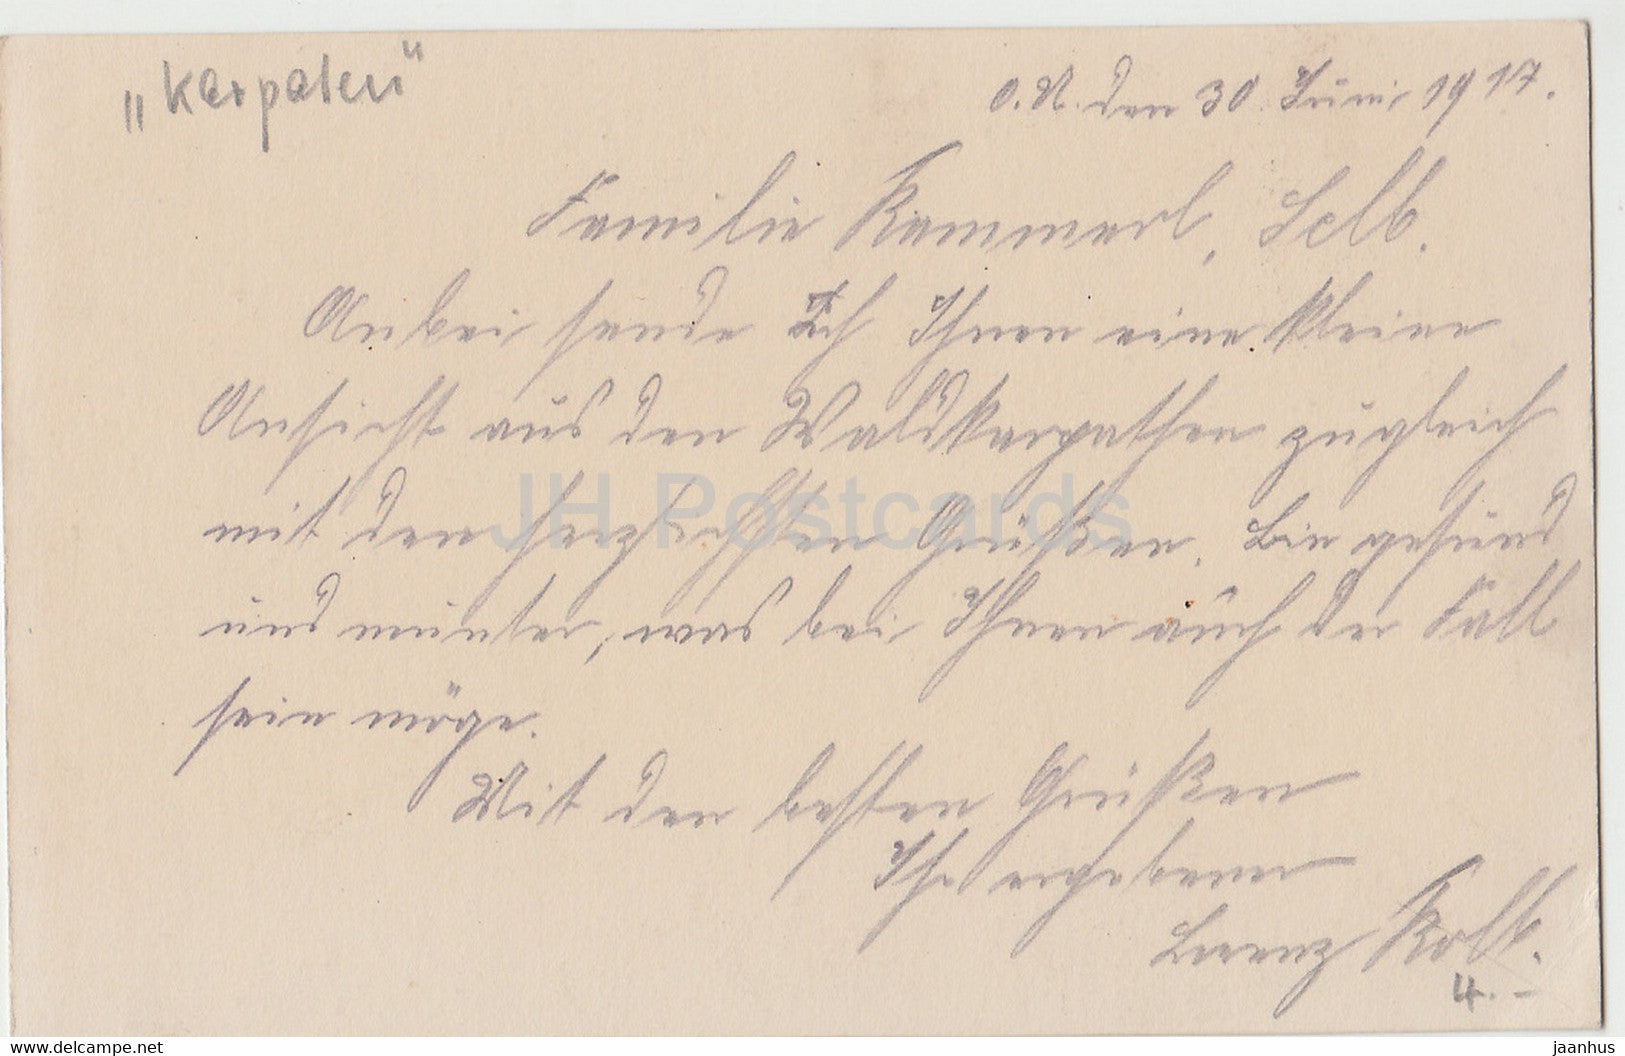 „Karpaten“
O.U. den 30. Juni 1917.
Familie Kammerl, Selb.
Anbei sende Ich Ihnen eine kleine
Ansicht aus den Waldkarpathen zugleich
mit den herzlichsten Grüßen. Bin gesund
und munter, was bei Ihnen auch der Fall
sein möge.
Mit den besten Grüßen
Ihr ergebener
Lorenz Kolb.
4.-
JH Postcards
www.delcampe.net
jaanhus